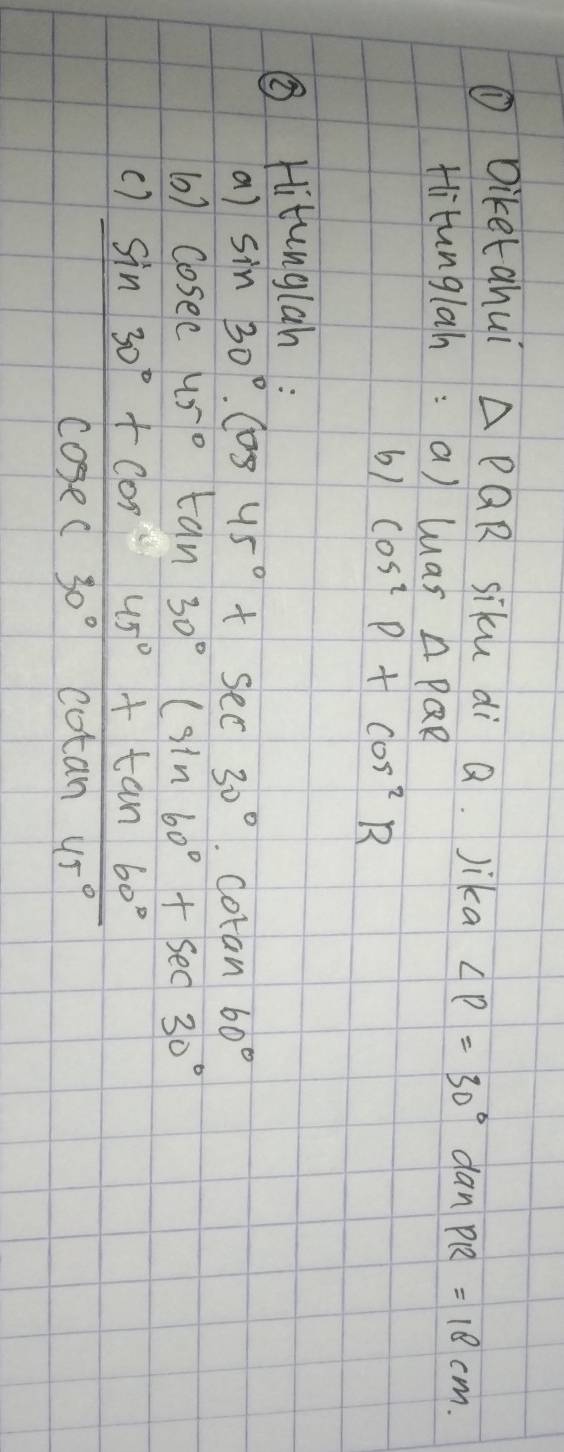 ① Diketahui Δ PQR siku di Q. Jika ∠P = 30° dan PR = 18 cm.
Hitunglah : a) luas Δ PQR
b) cos² P + cos² R
② Hitunglah :
a) sin 30°. Cos 45° + sec 30°. cotan 60°
b) Cosec 45° tan 30° (sin 60° + sec 30°
c) sin 30° + cos 45° + tan 60°
cosec 30° cotan 45°